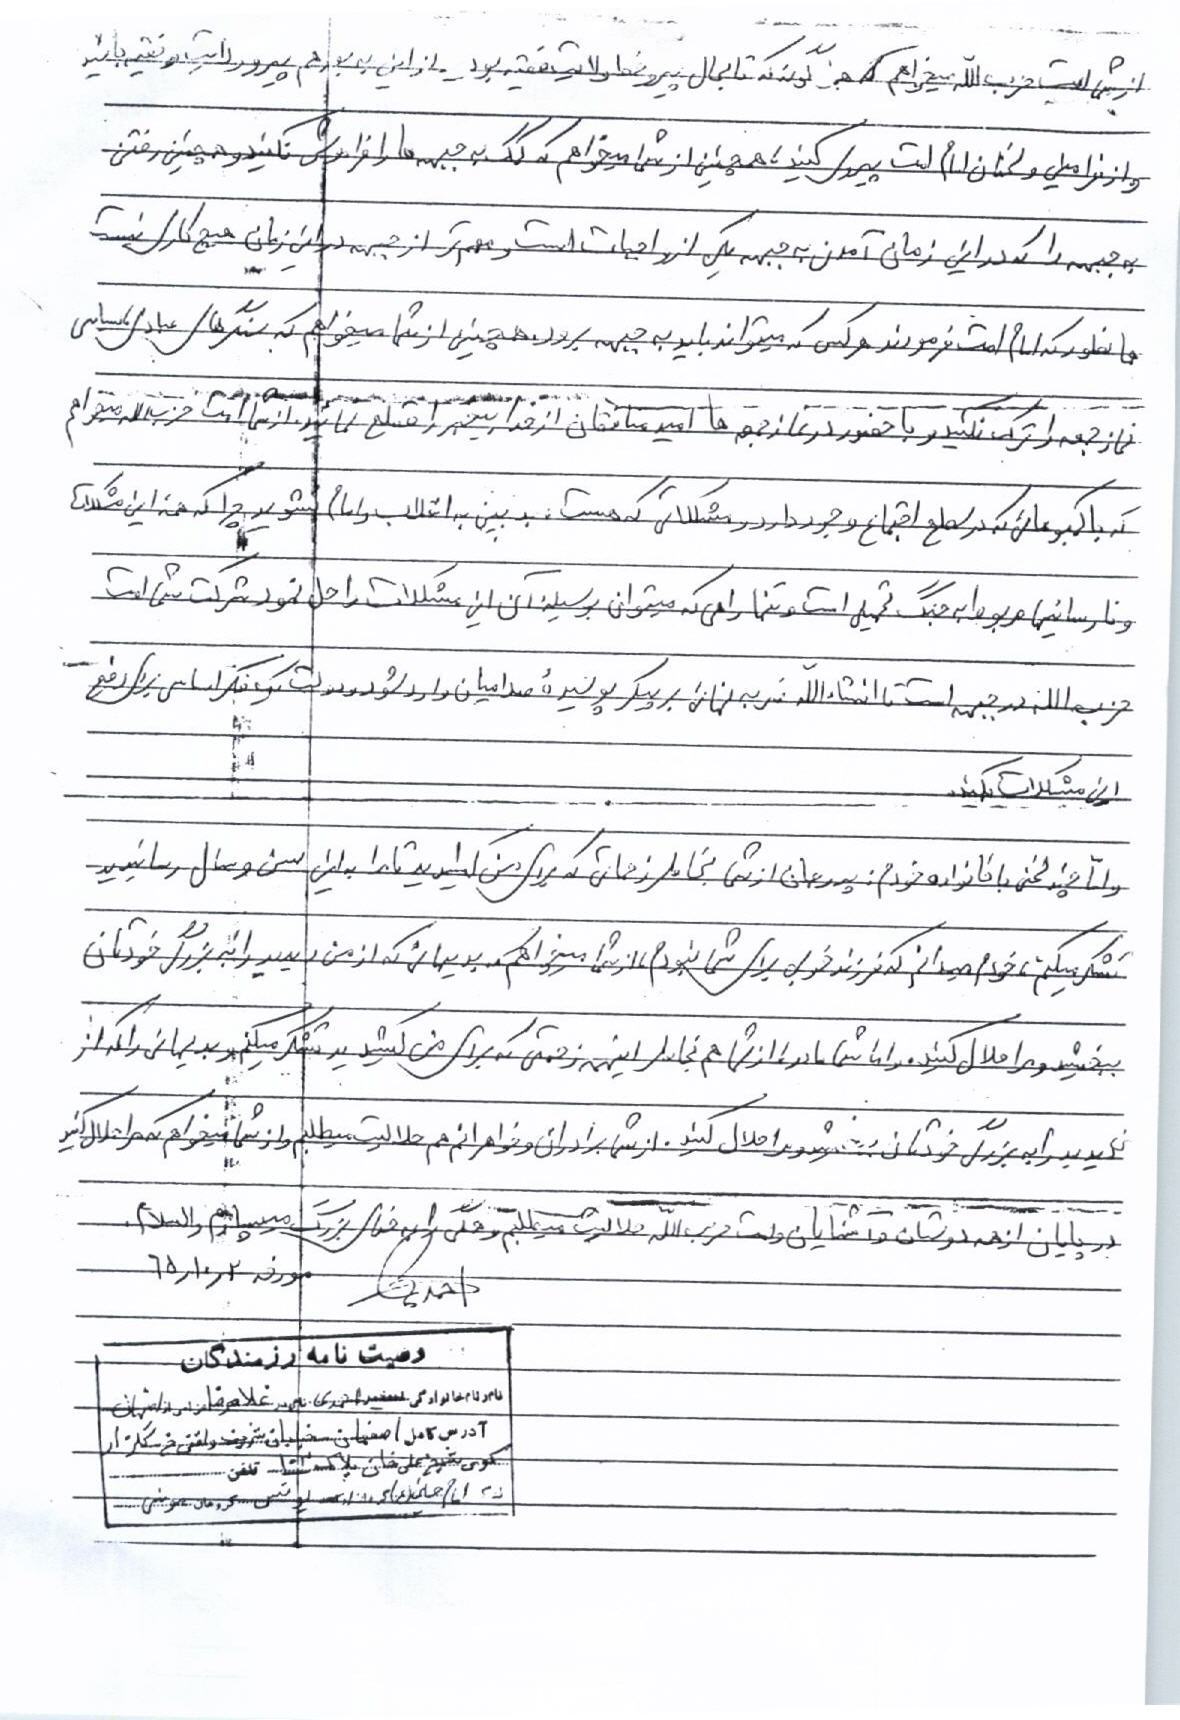 از شما امت حزب الله میخواهم که همانگونه که تابحال پیرو خط ولایت فقیه بودید از این به بعد هم پیرو ولایت فقیه باشید
و از فرامین و سخنان امام امت پیروی کنید، همچنین از شما میخواهم که کمک به جبهه ها را فراموش نکنید و همچنین رفتن
به جبهه را که در این زمان آمدن به جبهه یکی از واجبات است و مهمتر از جبهه در این زمان هیچ کاری نیست
همانطور که امام امت فرمودند هر کس که میتواند باید به جبهه برود، همچنین از شما میخواهم که سنگرهای عبادی سیاسی
نماز جمعه را ترک نکنید و با حضور در نماز جمعه ها امید منافقان از خدا بیخبر را قطع نمائید، از شما امت حزب الله میخواهم
که با کمبودهائی که در سطح اجتماع وجود دارد و مشکلاتی که هست، بدبین به انقلاب و امام نشوید چرا که همه این مشکلات
و نارسائیها مربوط به جنگ تحمیلی است و تنها راهی که میتوان بوسیله آن این مشکلات را حل نمود شرکت شما امت
حزب الله در جبهه است تا انشاءالله ضربه نهائی بر پیکر پوسیده صدامیان وارد شود و دولت یک فکر اساسی برای رفع
این مشکلات بکند.
و اما چند سخنی با خانواده خودم: پدر جان از شما بخاطر زحماتی که برای من کشیدید تا مرا به این سن و سال رسانیدید
تشکر میکنم، خودم میدانم که فرزند خوبی برای شما نبودم، از شما میخواهم، بدیهائی که از من دیدید را به بزرگی خودتان
ببخشید و مرا حلال کنید. و اما شما مادر، از شما هم بخاطر اینهمه زحمتی که برای من کشیدید تشکر میکنم و بدیهائی را که از
من دیدید را به بزرگی خودتان ببخشید و مرا حلال کنید. از شما برادران و خواهرانم هم حلالیت میطلبم و از شما میخواهم که مرا حلال کنید
در پایان از همه دوستان و آشنایان و امت حزب الله حلالیت میطلبم و همگی را به خدای بزرگ میسپارم والسلام.
احمدی
مورخه ۶۵/۱۰/۲
وصیت نامه رزمندگان
نام و نام خانوادگی سعید احمدی نام پدر غلامرضا
آدرس کامل اصفهان خیابان
کوی شیخ علی خان پلاک تلفن
یونس